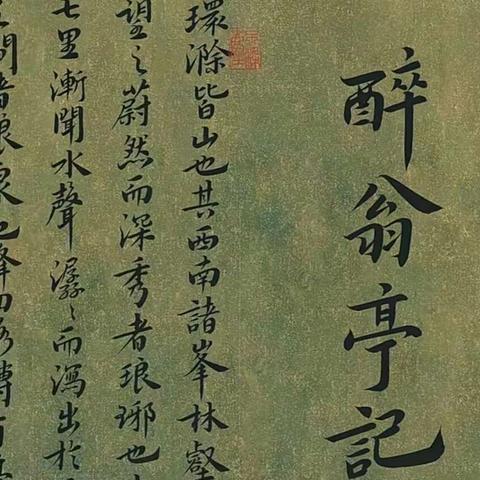 醉翁亭記
環滁皆山也其西南諸峯林壑
望之蔚然而深秀者琅琊也
七里漸聞水聲潺〻而瀉出於